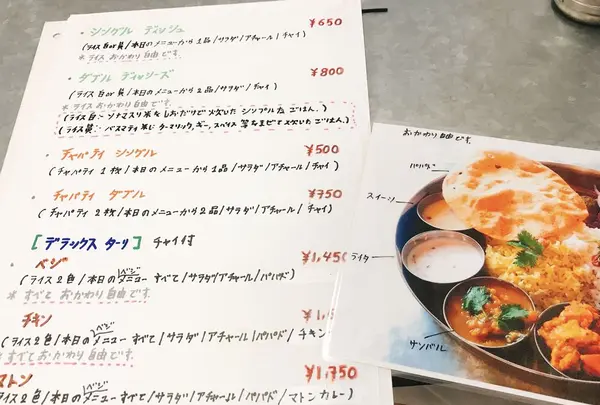 ・シングル ディッシュ ¥650
(ライス 白or黄/本日のメニューから1品/サラダ/アチャール/チャイ)
※ライスおかわり自由です。
・ダブル ディッシーズ ¥800
(ライス 白or黄/本日のメニューから2品/サラダ/チャイ)
※ライスおかわり自由です。
(ライス白:ソナマスリ米をしおだけで炊いたシンプルなごはん。)
(ライス黄:バスマティ米にターメリック、ギー、スパイス等をまぜて炊いたごはん。)
・チャパティ シングル ¥500
(チャパティ1枚/本日のメニューから1品/サラダ/アチャール/チャイ)
・チャパティ ダブル ¥750
(チャパティ2枚/本日のメニューから2品/サラダ/アチャール/チャイ)
[デラックス ターリ] チャイ付
・ベジ ¥1,450
(ライス2色/本日のベジメニューすべて/サラダ/アチャール/パパド)
※すべておかわり自由です。
チキン
(ライス2色/本日のベジメニューすべて/サラダ/アチャール/パパド/チキン
※すべておかわり自由です。
マトン ¥1,750
(ライス2色/本日のベジメニューすべて/サラダ/アチャール/パパド/マトンカレー)
おかわり自由です。
パパド
スイーツ
ライタ
サンバル